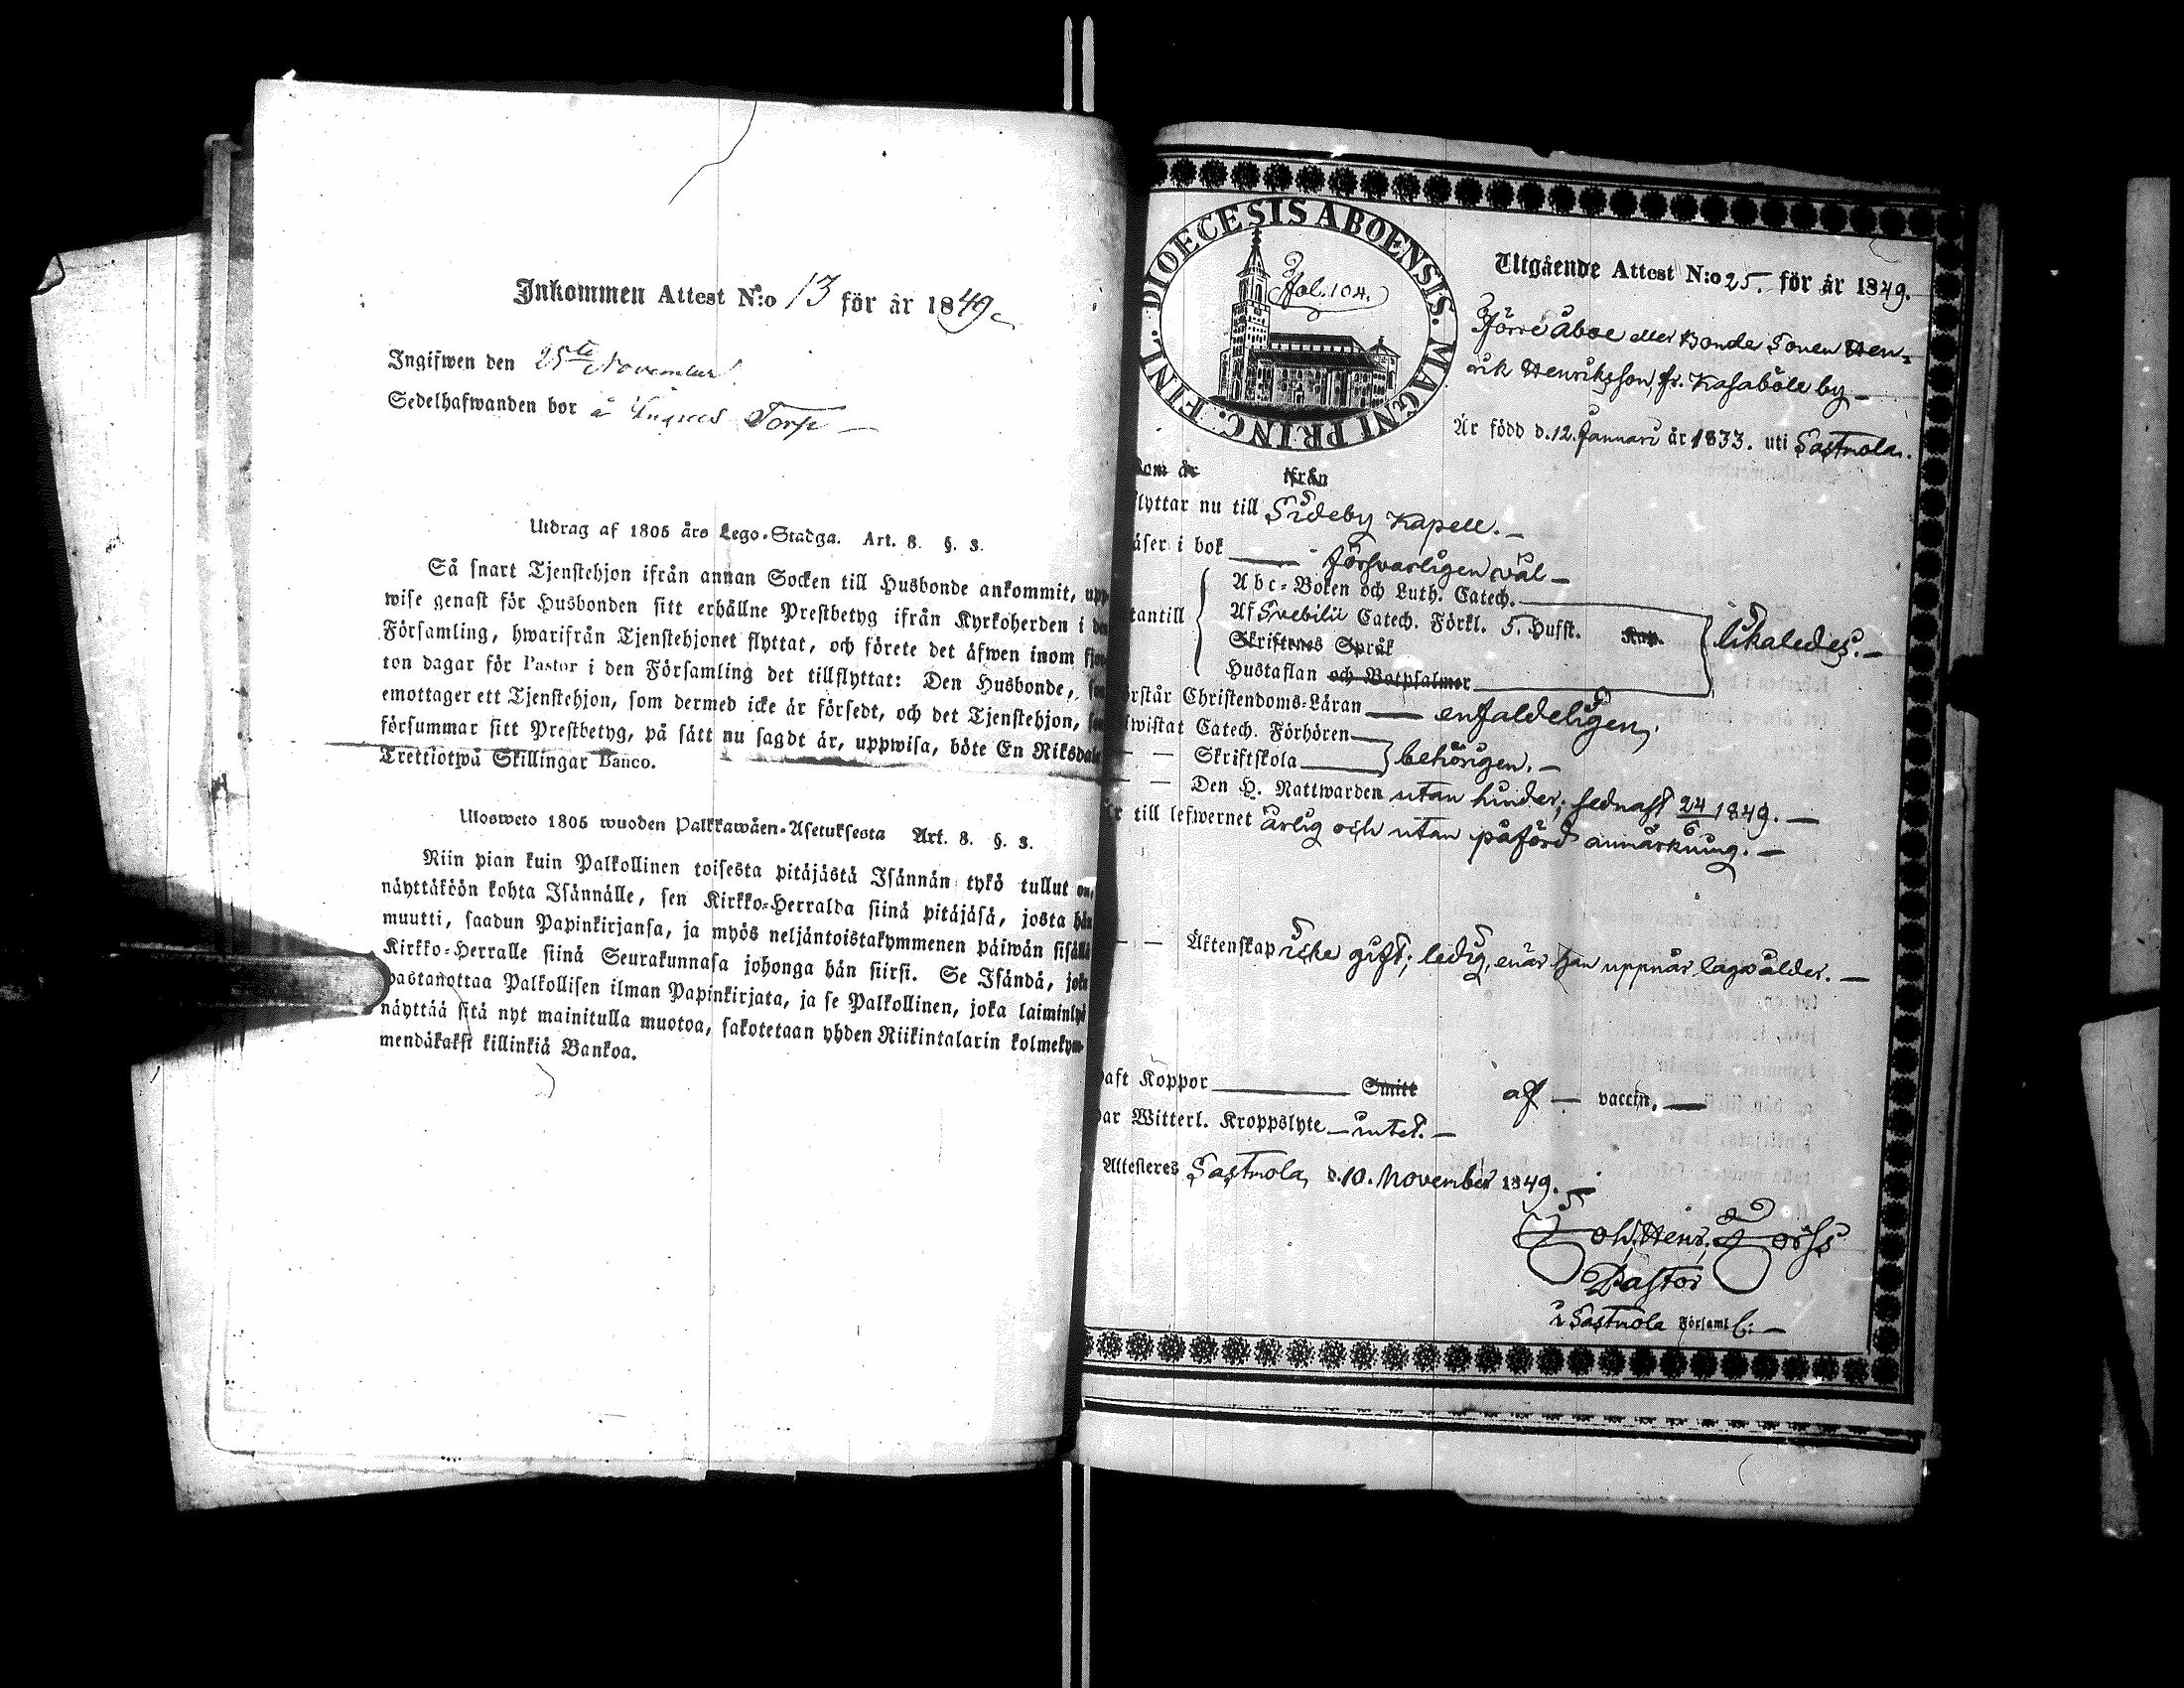 Inkommen Attest N:o 13 för år 1849.
Ingifwen den 25te November
Sedelhafwanden bor å Torp —
Utdrag af 1805 års Lego-Stadga. Art. 8. §. 3.
Så snart Tjenstehjon ifrån annan Socken till Husbonde ankommit, upp-
wise genast för Husbonden sitt erhållne Prestbetyg ifrån Kyrkoherden i den
Församling, hwarifrån Tjenstehjonet flyttat, och förete det äfwen inom fjor-
ton dagar för Pastor i den Församling det tillflyttat: Den Husbonde, som
emottager ett Tjenstehjon, som dermed icke är försedt, och det Tjenstehjon, som
försummar sitt Prestbetyg, på sätt nu sagdt är, uppwisa, böte En Riksdaler
Trettiotwå Skillingar Banco.
Ulosweto 1805 wuoden Palkkawäen-Asetuksesta Art. 8. §. 3.
Niin pian kuin Palkollinen toisesta pitäjästä Isännän tykö tullut on,
näyttäköön kohta Isännälle, sen Kirkko-Herralda siinä pitäjäsä, josta hän
muutti, saadun Papinkirjansa, ja myös neljäntoistakymmenen päiwän sisällä
Kirkko-Herralle siinä Seurakunnasa johonga hän siirsi. Se Isändä, joka
wastanottaa Palkollisen ilman Papinkirjata, ja se Palkollinen, joka laiminlyö
näyttää sitä nyt mainitulla muotoa, sakotetaan yhden Riikintalarin kolmekym-
mendäkaksi killinkiä Bankoa.
DIOECESIS ABOENSIS. MAGNI PRINC. FINL.
Fol. 104.
Utgående Attest N:o 25. för år 1849.
Förre Åboe eller Bonde Sonen Hen-
rik Henriksson, fr. Kasaböle by —
Är född d. 12. Januari år 1833. uti Sastmola.
kom år från
flyttar nu till Sideby Kapell. —
läser i bok — försvarligen väl —
Abc-Boken och Luth. Catech.
utantill Af Svebilii Catech. Förkl. 5. Hufst. Kap. likaledes. —
Skriftenes Språk
Hustaflan och Botpsalmer
förstår Christendoms-Läran — enfaldeligen,
bewistat Catech. Förhören
— — Skriftskola behörigen. —
— — Den H. Nattwarden utan hinder; sednast 24/6 1849. —
är till lefwernet ärlig och utan påförd anmärkning. —
— — Äktenskap icke gift; ledig, enär han uppnår laga ålder. —
haft Koppor Smitt af — vaccin. —
har Witterl. Kroppslyte — intet. —
Attesteres Sastmola, d. 10. November 1849. —
Joh. Henr. Forss
Pastor
i Sastmola Församl: